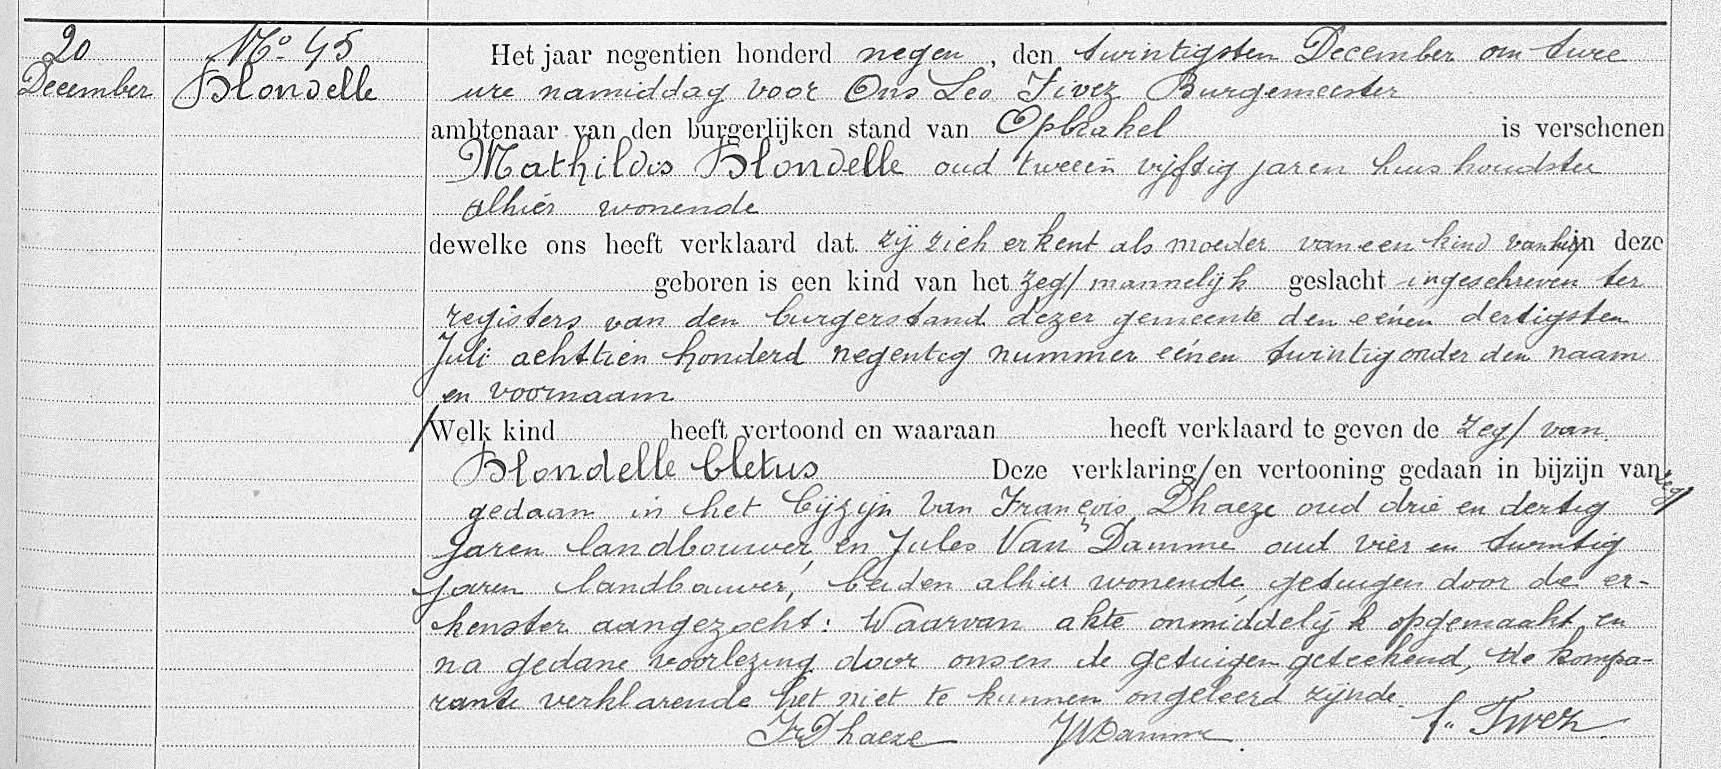 20
December
No. 45
Blondelle
Het jaar negentien honderd negen, den twintigsten December om twee
ure namiddag voor Ons Leo Fivez Burgemeester
ambtenaar van den burgerlijken stand van Opbrakel is verschenen
Mathildis Blondelle oud tweeën vijftig jaren huishoudster
alhier wonende
dewelke ons heeft verklaard dat zij zich erkent als moeder van een kind van in deze
geboren is een kind van het zeg/ mannelijk geslacht ingeschreven ter
registers van den burgerstand dezer gemeente den eénen dertigsten
Juli achttien honderd negentig nummer eénen twintig onder den naam
en voornaam
/Welk kind heeft vertoond en waaraan heeft verklaard te geven de zeg/ van
Blondelle Cletus Deze verklaring/en vertooning gedaan in bijzijn van zeg/
gedaan in het bijzijn van François Dhaeze oud drie en dertig
jaren landbouwer, en Jules Van Damme oud vier en twintig
jaren landbouwer, beiden alhier wonende, getuigen door de er-
kenster aangezocht: Waarvan akte onmiddelijk opgemaakt en
na gedane voorlezing door ons en de getuigen geteekend, de kompa-
rante verklarende het niet te kunnen ongeleerd zijnde.
Fr Dhaeze JVDamme L. Fivez